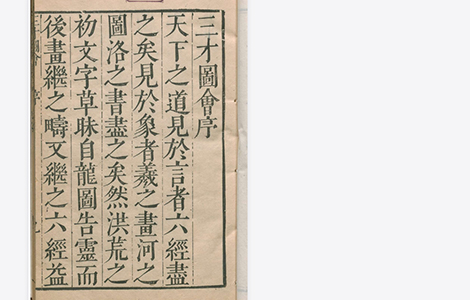 三才圖會序
天下之道見於言者六經盡
之矣見於象者羲之畫河之
圖洛之書盡之矣然洪荒之
初文字草昧自龍圖告靈而
後畫繼之疇又繼之六經益